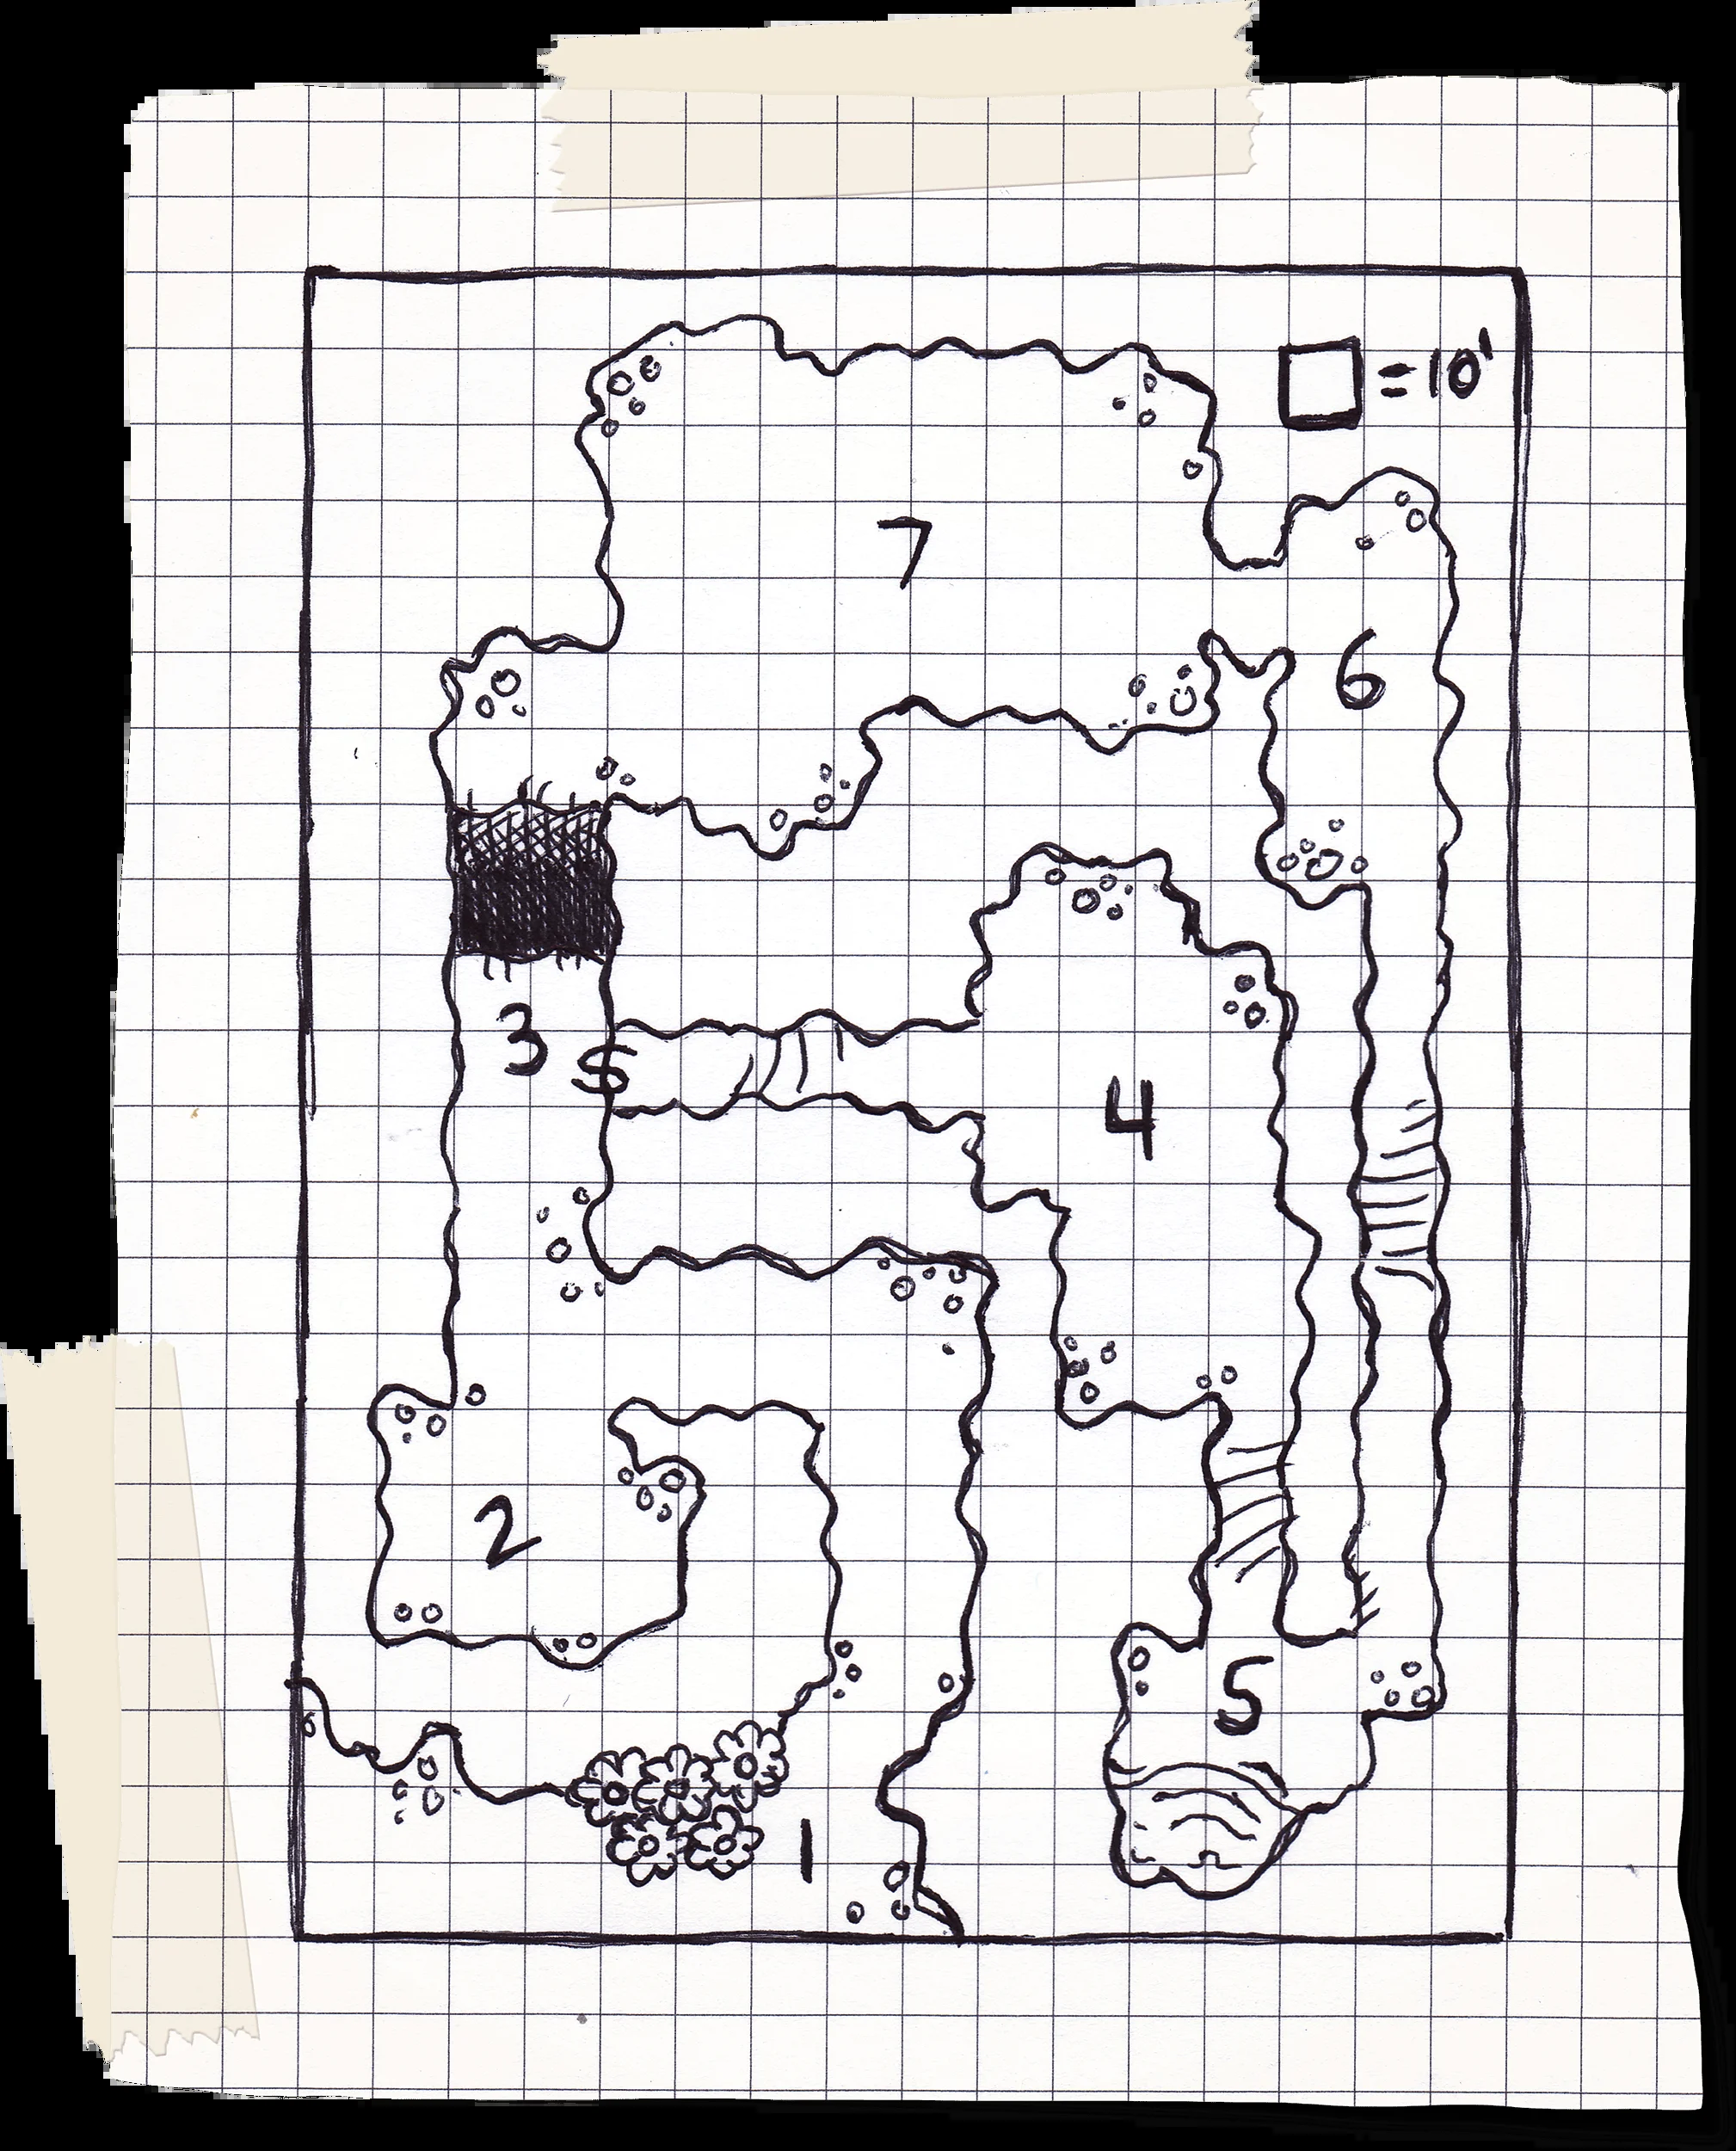 = 10'
7
6
3
S
4
2
5
1